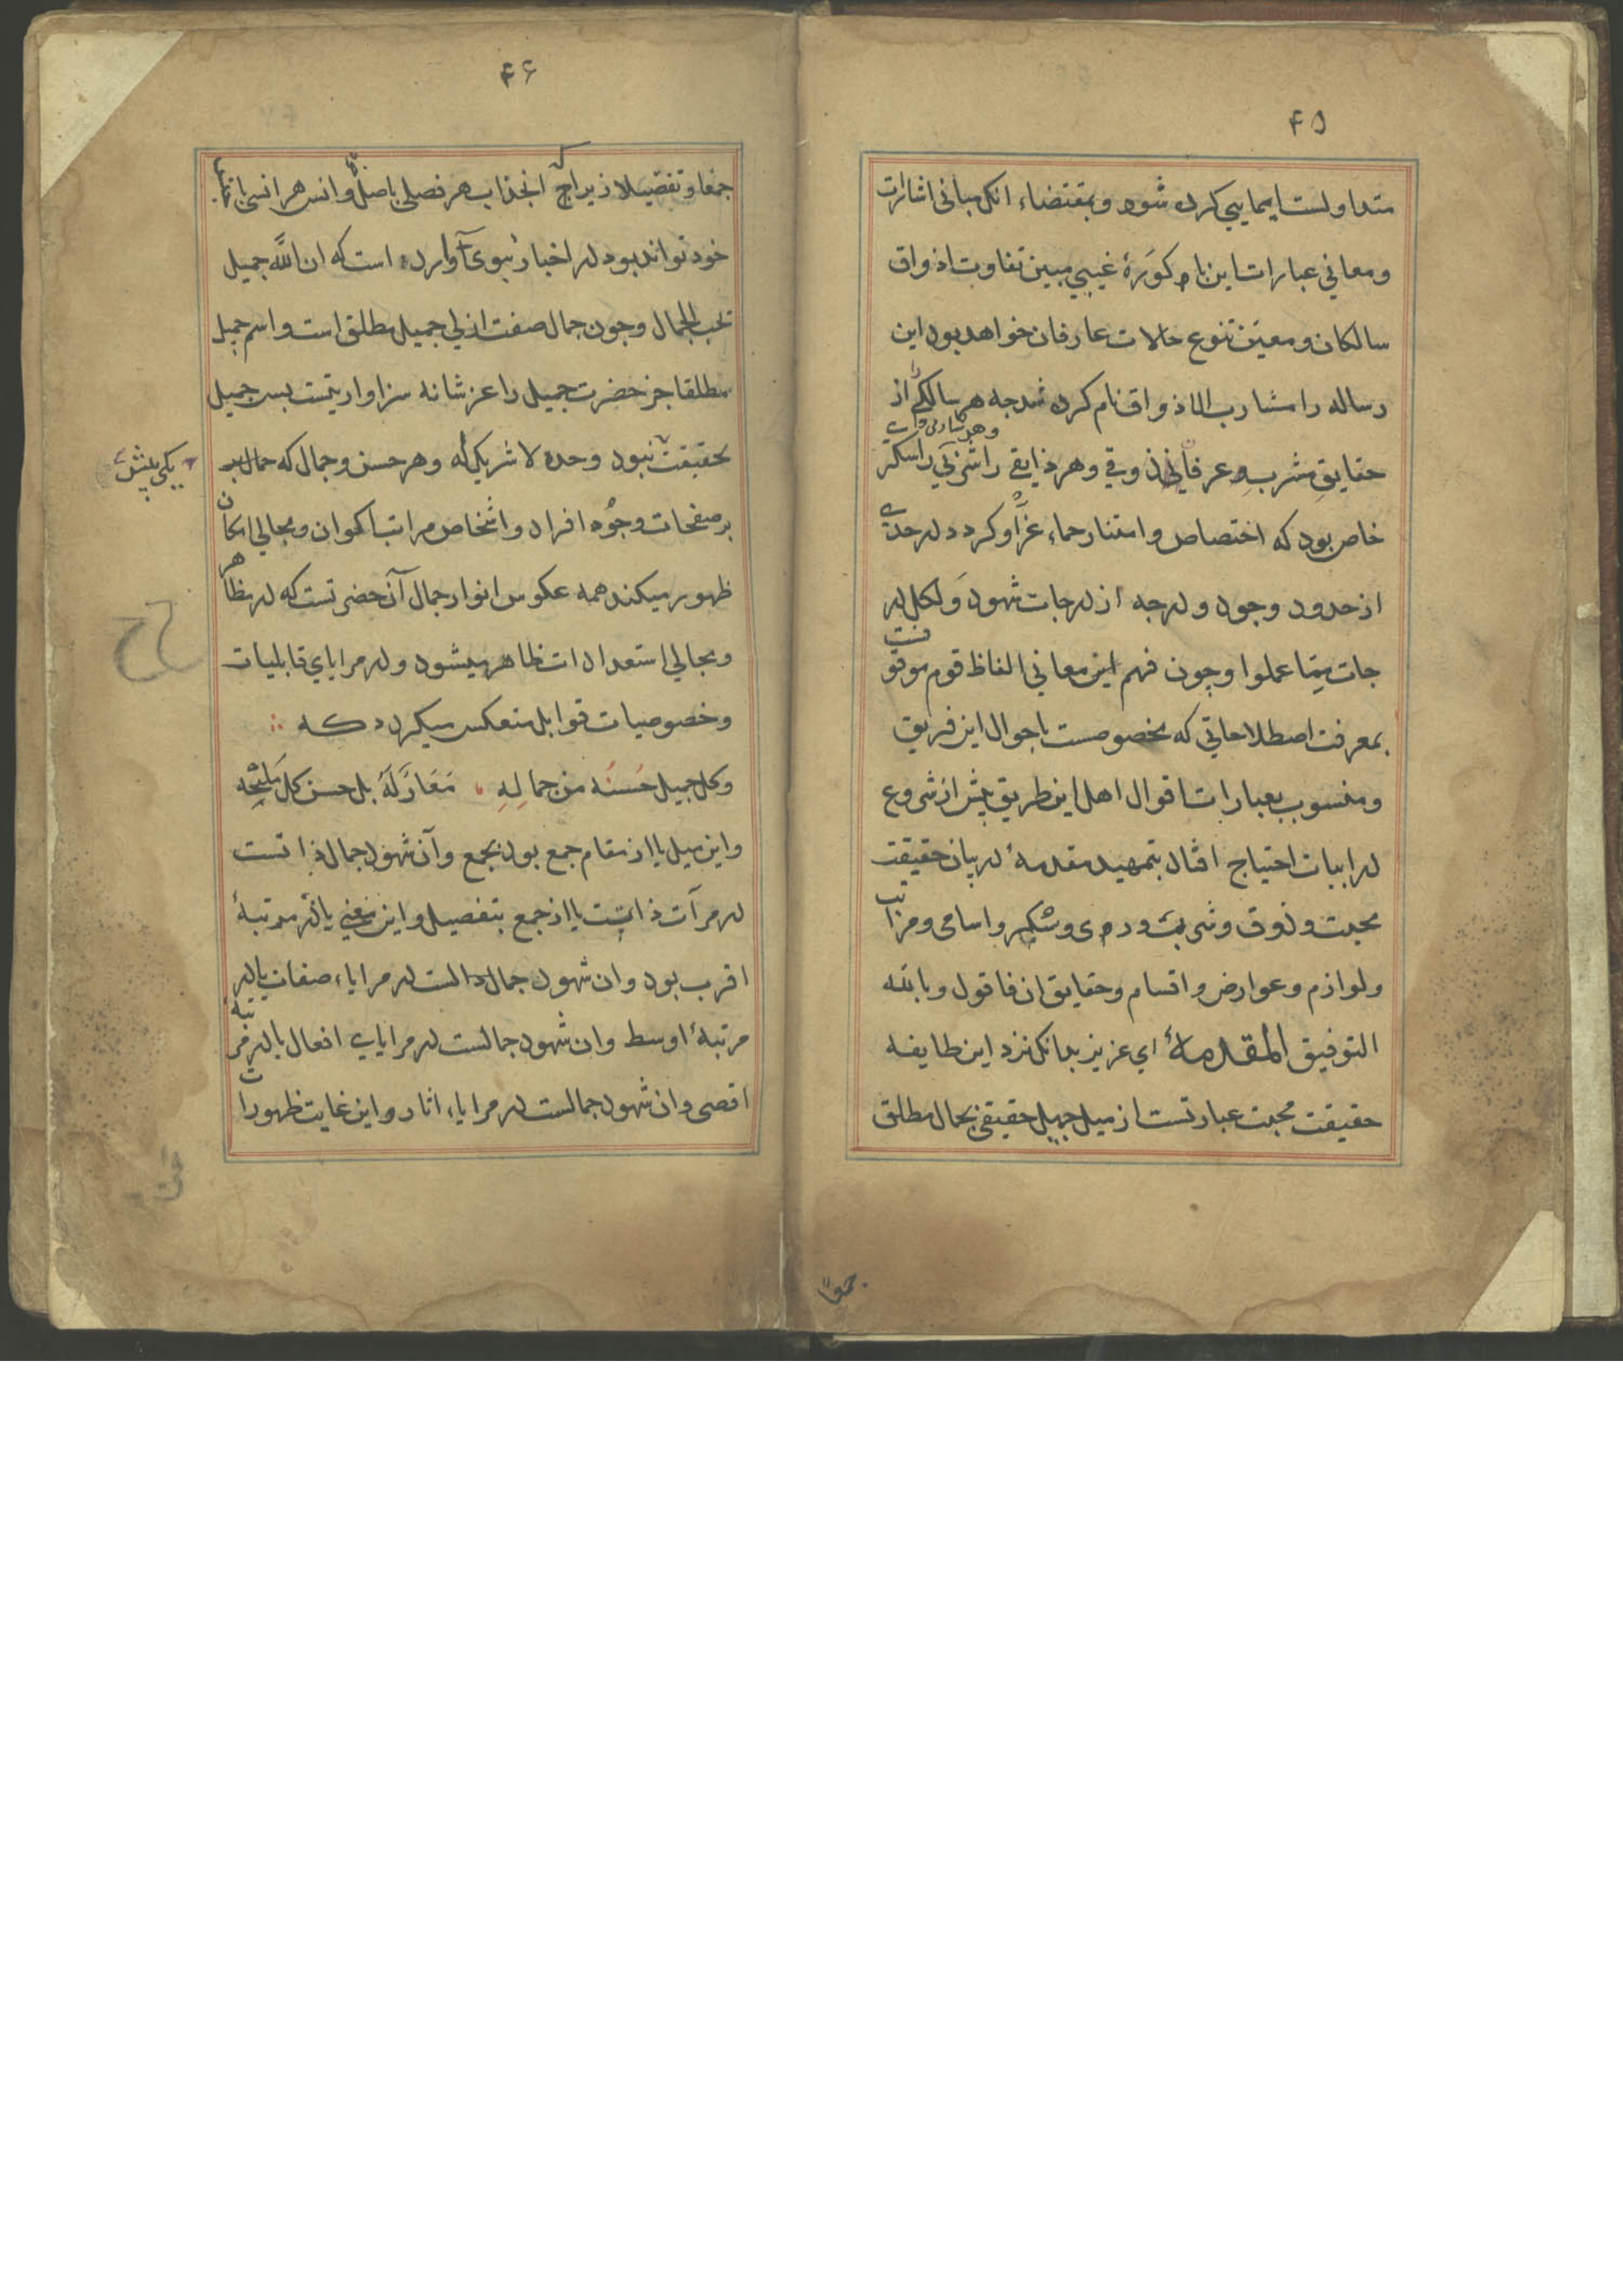 ۴۵
متداولست ایمایی کرده شود و بمقتضاء انکل مبانی اشارات
و معانی عبارات این باکورۀ غیبی مبین تفاوت اذواق
سالکان و معین تنوع حالات عارفان خواهد بود این
رساله را مشارب الاذواق نام کرده شد جه هر سالکی از
حقایق مشرب عرفانی ذوقی و هر ذایقی را شربی
خاص بود که اختصاص و امتناز حماء عز او کردد در حدی
از حدود وجود و درجه از درجات شهود و لکل در
جات مما عملوا و چون فهم این معانی الفاظ قوم موقو
فست
بمعرفت اصطلاحاتی که مخصوصست باحوال این فریق
و منسوب بعبارات اقوال اهل این طریق پیش از شروع
در ابیات احتیاج افتاد بتمهید مقدمۀ در بیان حقیقت
محبت و ذوق و شرب و ری و سکر و اسامی و مراتب
و لوازم و عوارض و اقسام و حقایق ان فاقول و بالله
التوفیق المقدمة ای عزیز بدانکه نزد این طایفه
حقیقت محبت عبارتست از میل جمیل حقیقی بجمال مطلق
جمعا
۴۶
جمعا و تفصیلا زیراجه انجذاب هر فصلی باصل و انس هر انسی با
خود تواند بود در اخبار نبوی آوارده است که ان الله جمیل
یحب الجمال و جون جمال صفت ازلی جمیل مطلق است و اسم جمیل
مطلقا جز حضرت جمیل را عز شانه سزاوار نیست بس جمیل
بحقیقت نبود وحده لا شریک له و هر حسن و جمال که
یکی بیش
بر صفحات وجوه افراد و اشخاص مراتب اکوان و مجالی امکان
ظهور میکند همه عکوس انوار جمال آن حضرتست که در مظاهر
و مجالی استعدادات ظاهر میشود و در مرایای قابلیات
و خصوصیات قوابل منعکس میکردد که
و کل جمیل حسنه من جماله معار له بل حسن کل ملیحه
و این میل یا از مقام جمع بود بجمع و آن شهود جمال ذاتست
در مرآت ذات یا از جمع بتفصیل و این معنی یا در مرتبۀ
اقرب بود و ان شهود جمال ذاتست در مرایاء صفات یا در
مرتبۀ اوسط و ان شهود جمالست در مرایای افعال یا در مرتبه
اقصی و ان شهود جمالست در مرایاء اثار و این غایت ظهورات